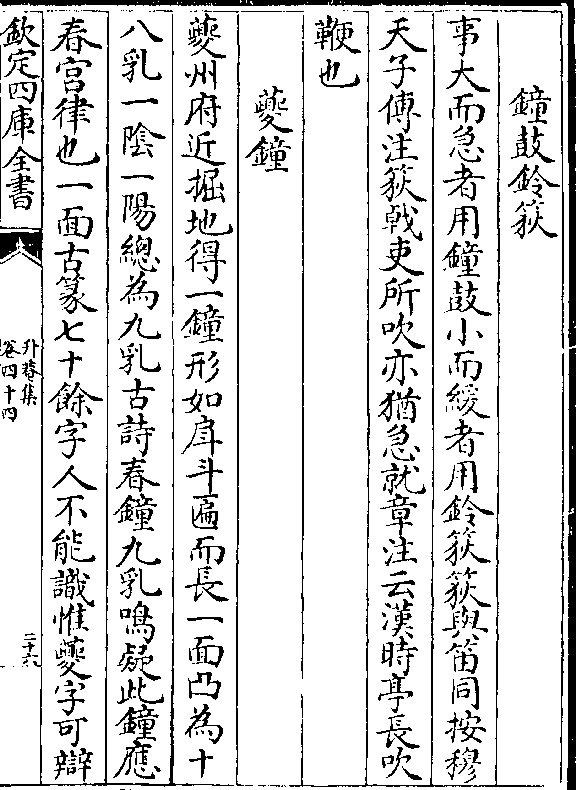 鐘鼓鈴荻
事大而急者用鐘鼓小而緩者用鈴荻荻與笛同按穆
天子傳注荻戟吏所吹亦猶急就章注云漢時亭長吹
鞭也
夔鐘
夔州府近掘地得一鐘形如戽斗匾而長一面凸為十
八乳一陰一陽總為九乳古詩春鐘九乳鳴疑此鐘應
春宮律也一面古篆七十餘字人不能識惟夔字可辯
欽定四庫全書
升菴集
卷四十四
二十六